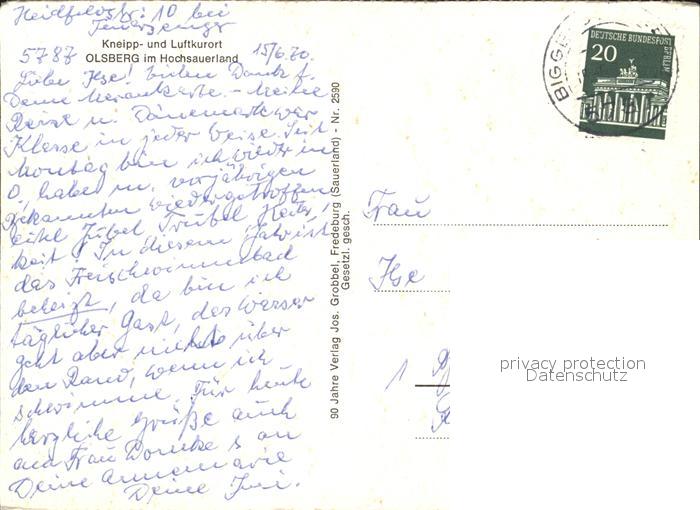 Heidfeldstr. 10 bei
Kneipp- und Luftkurort
5787 OLSBERG im Hochsauerland 15/6.70.
Liebe Ilse! vielen Dank f.
Deine Merankarte. - Meine
Reise n. Dänemark war
Klasse in jeder Weise. Seit
Montag bin ich wieder in
O., haben m. vorjährigen
Bekannten wiedergetroffen
eitel Jubel Trubel Heiter,
keit! In diesem Jahr ist
das Freischwimmbad
beheizt, da bin ich
täglicher Gast, das Wasser
geht aber nicht über
den Rand, wenn ich
schwimme. Für heute
herzliche Grüße auch
an Frau
Deine Annemarie
Deine
90 Jahre Verlag Jos. Grobbel, Fredeburg (Sauerland) - Nr. 2590
Gesetzl. gesch.
BIGGE
DEUTSCHE BUNDESPOST
BERLIN
20
Frau
Ilse
1
privacy protection
Datenschutz